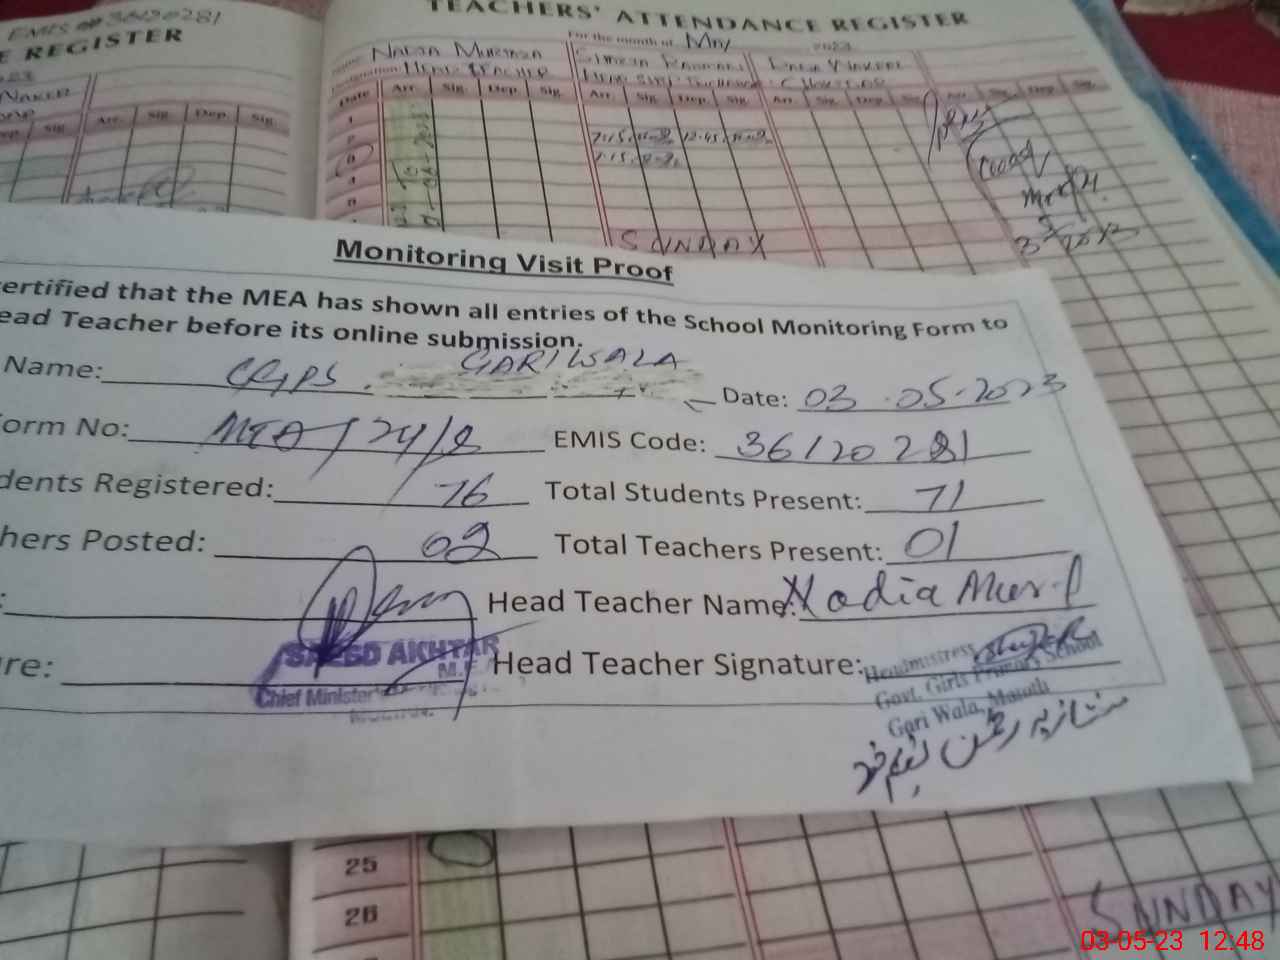 EMIS 36120281
E REGISTER
TEACHERS' ATTENDANCE REGISTER
For the month of May 2023
NADIA MURTAZA
HEAD TEACHER
NAKER
Date Arr. Sig. Dep. Sig. Arr. Sig. Dep. Sig. Arr. Sig. Dep.
Dep. Sig. Arr. Sig. Dep. Sig.
1
2
3
4
5
7:15 12:45
7:15
SUNDAY
Monitoring Visit Proof
ertified that the MEA has shown all entries of the School Monitoring Form to
ead Teacher before its online submission.
Name: GGPS GARI WALA Date: 03.05.2023
orm No: MEA/24/2 EMIS Code: 36120281
dents Registered: 76 Total Students Present: 71
hers Posted: 02 Total Teachers Present: 01
: Head Teacher Name: Nadia Mur
ure: Head Teacher Signature:
SAEED AKHTAR
Chief Minister
Headmistress
Govt. Girls Primary School
Gari Wala,
25
26
SUNDAY
03-05-23 12:48